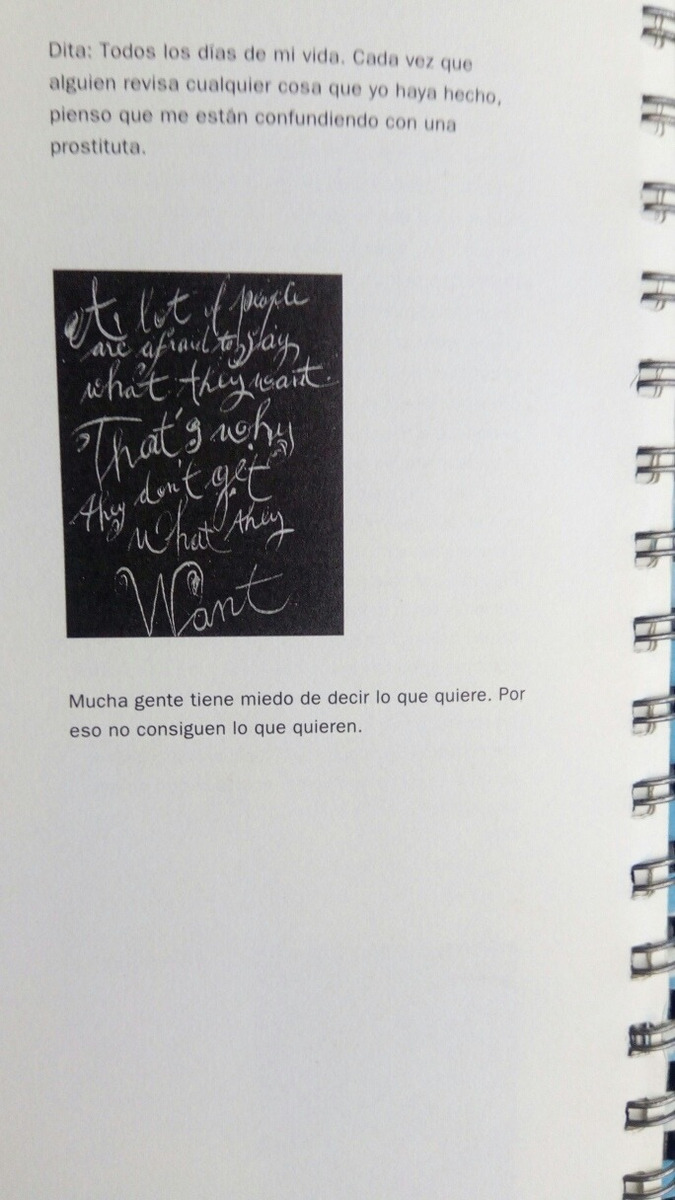 Dita: Todos los días de mi vida. Cada vez que
alguien revisa cualquier cosa que yo haya hecho,
pienso que me están confundiendo con una
prostituta.
A lot of people
are afraid to say
what they want.
That's why
they don't get
what they
Want
Mucha gente tiene miedo de decir lo que quiere. Por
eso no consiguen lo que quieren.